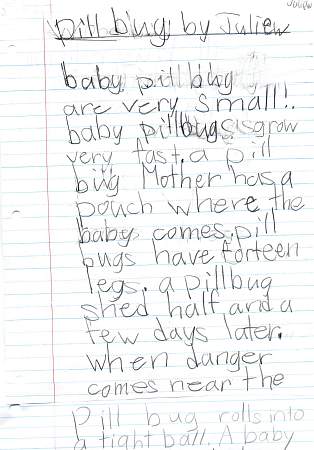 Juliew
pill bug by Juliew
baby pill bug
are very small!.
baby pillbugs grow
very fast. a pill
bug Mother has a
pouch where the
baby comes. pill
bugs have forteen
legs. a pillbug
shed half and a
few days later.
when danger
comes near the
Pill bug rolls into
a tight ball. A baby